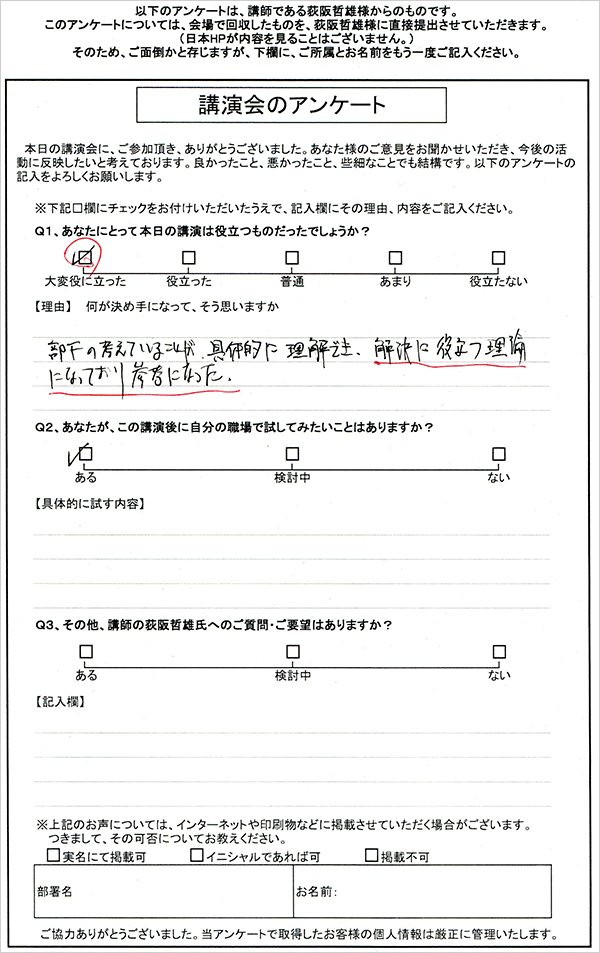 以下のアンケートは、講師である荻阪哲雄様からのものです。
このアンケートについては、会場で回収したものを、荻阪哲雄様に直接提出させていただきます。
(日本HPが内容を見ることはございません。)
そのため、ご面倒かと存じますが、下欄に、ご所属とお名前をもう一度ご記入ください。
講演会のアンケート
本日の講演会に、ご参加頂き、ありがとうございました。あなた様のご意見をお聞かせいただき、今後の活
動に反映したいと考えております。良かったこと、悪かったこと、些細なことでも結構です。以下のアンケートの
記入をよろしくお願いします。
※下記□欄にチェックをお付けいただいたうえで、記入欄にその理由、内容をご記入ください。
Q1、あなたにとって本日の講演は役立つものだったでしょうか?
大変役に立った 役立った 普通 あまり 役立たない
【理由】 何が決め手になって、そう思いますか
部下の考えていることが、具体的に理解でき、解決に役立つ理論
になっており参考になった。
Q2、あなたが、この講演後に自分の職場で試してみたいことはありますか?
ある 検討中 ない
【具体的に試す内容】
Q3、その他、講師の荻阪哲雄氏へのご質問・ご要望はありますか?
ある 検討中 ない
【記入欄】
※上記のお声については、インターネットや印刷物などに掲載させていただく場合がございます。
つきまして、その可否についてお教えください。
□実名にて掲載可 □イニシャルであれば可 □掲載不可
部署名 お名前:
ご協力ありがとうございました。当アンケートで取得したお客様の個人情報は厳正に管理いたします。